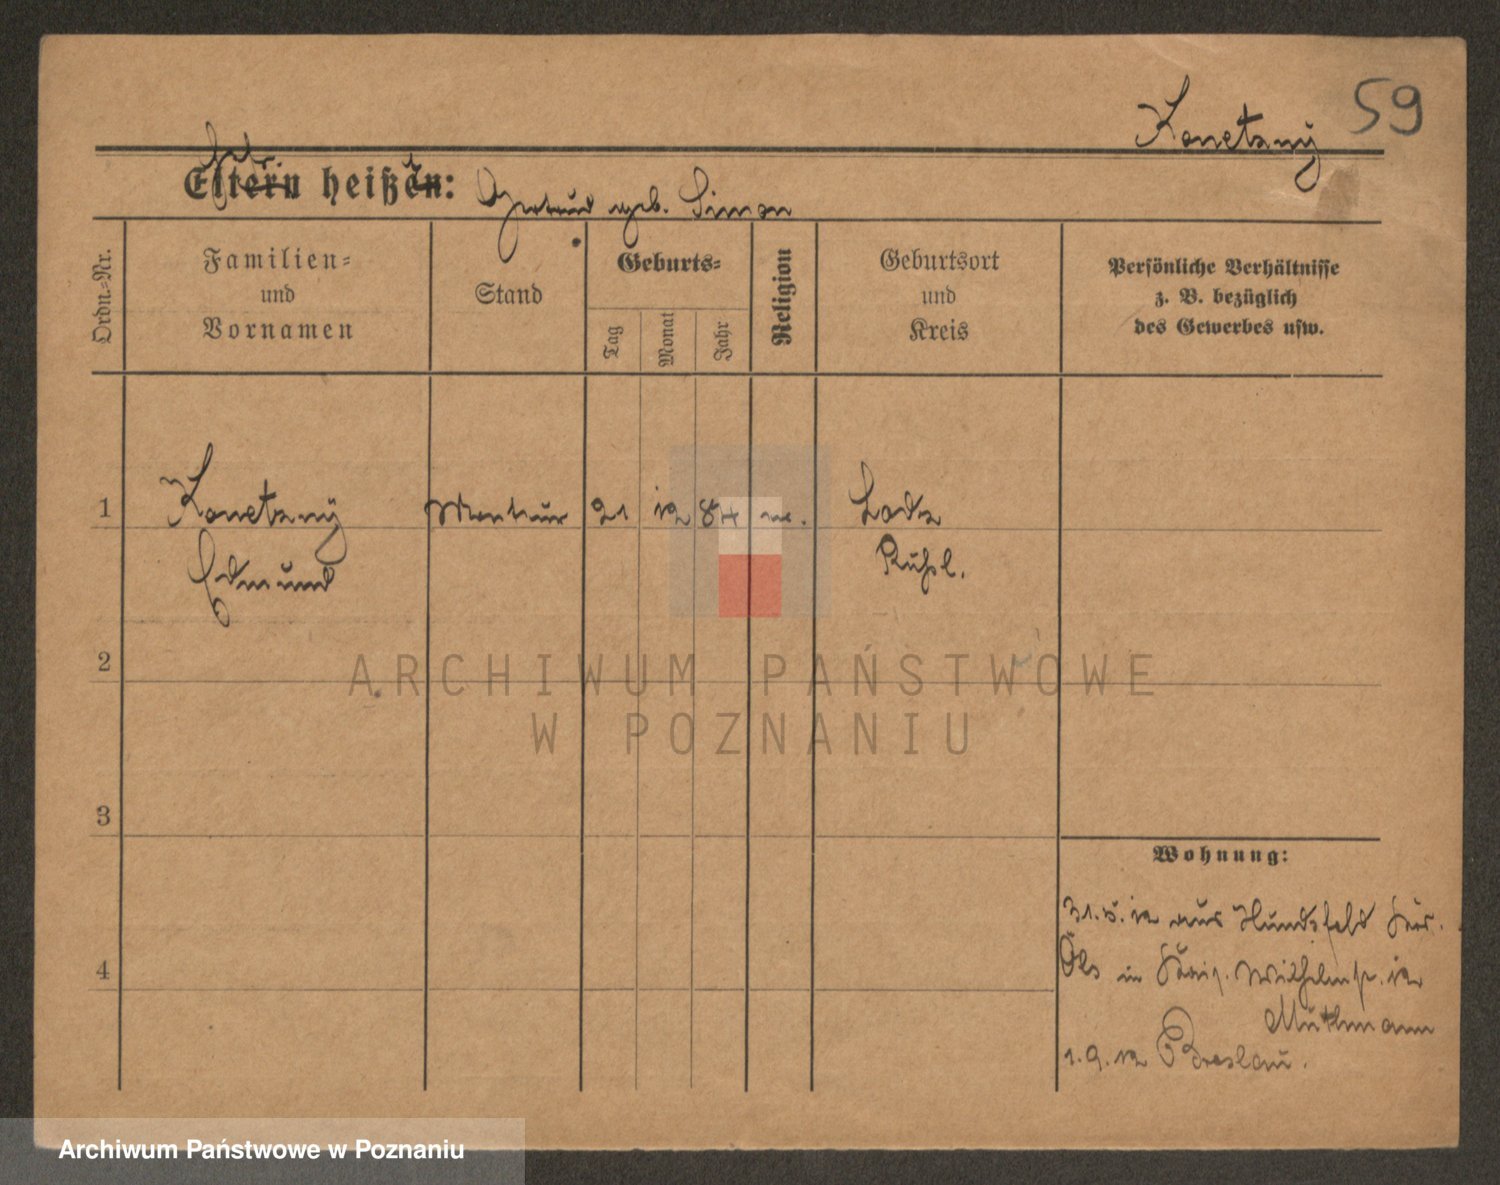 59
Konetzny
Eltern heißen:
Gertrud geb. Simon
Ordn.=Nr.
Familien=
und
Vornamen
Stand
Geburts=
Tag
Monat
Jahr
Religion
Geburtsort
und
Kreis
Persönliche Verhältnisse
z. B. bezüglich
des Gewerbes usw.
1
Konetzny
Edmund
Monteur
21
12
84
Lodz
Rußl.
2
ARCHIWUM PAŃSTWOWE
W POZNANIU
3
Wohnung:
31.5.12 aus Hundsfeld
Öls in Wilhelmstr. 12
Muthmann
4
1.9.12 Breslau.
Archiwum Państwowe w Poznaniu